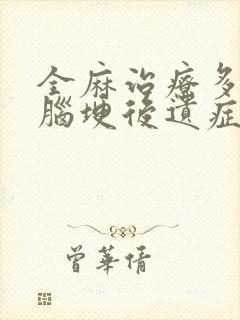 全麻治療多
腦梗後遺症
曾華倩